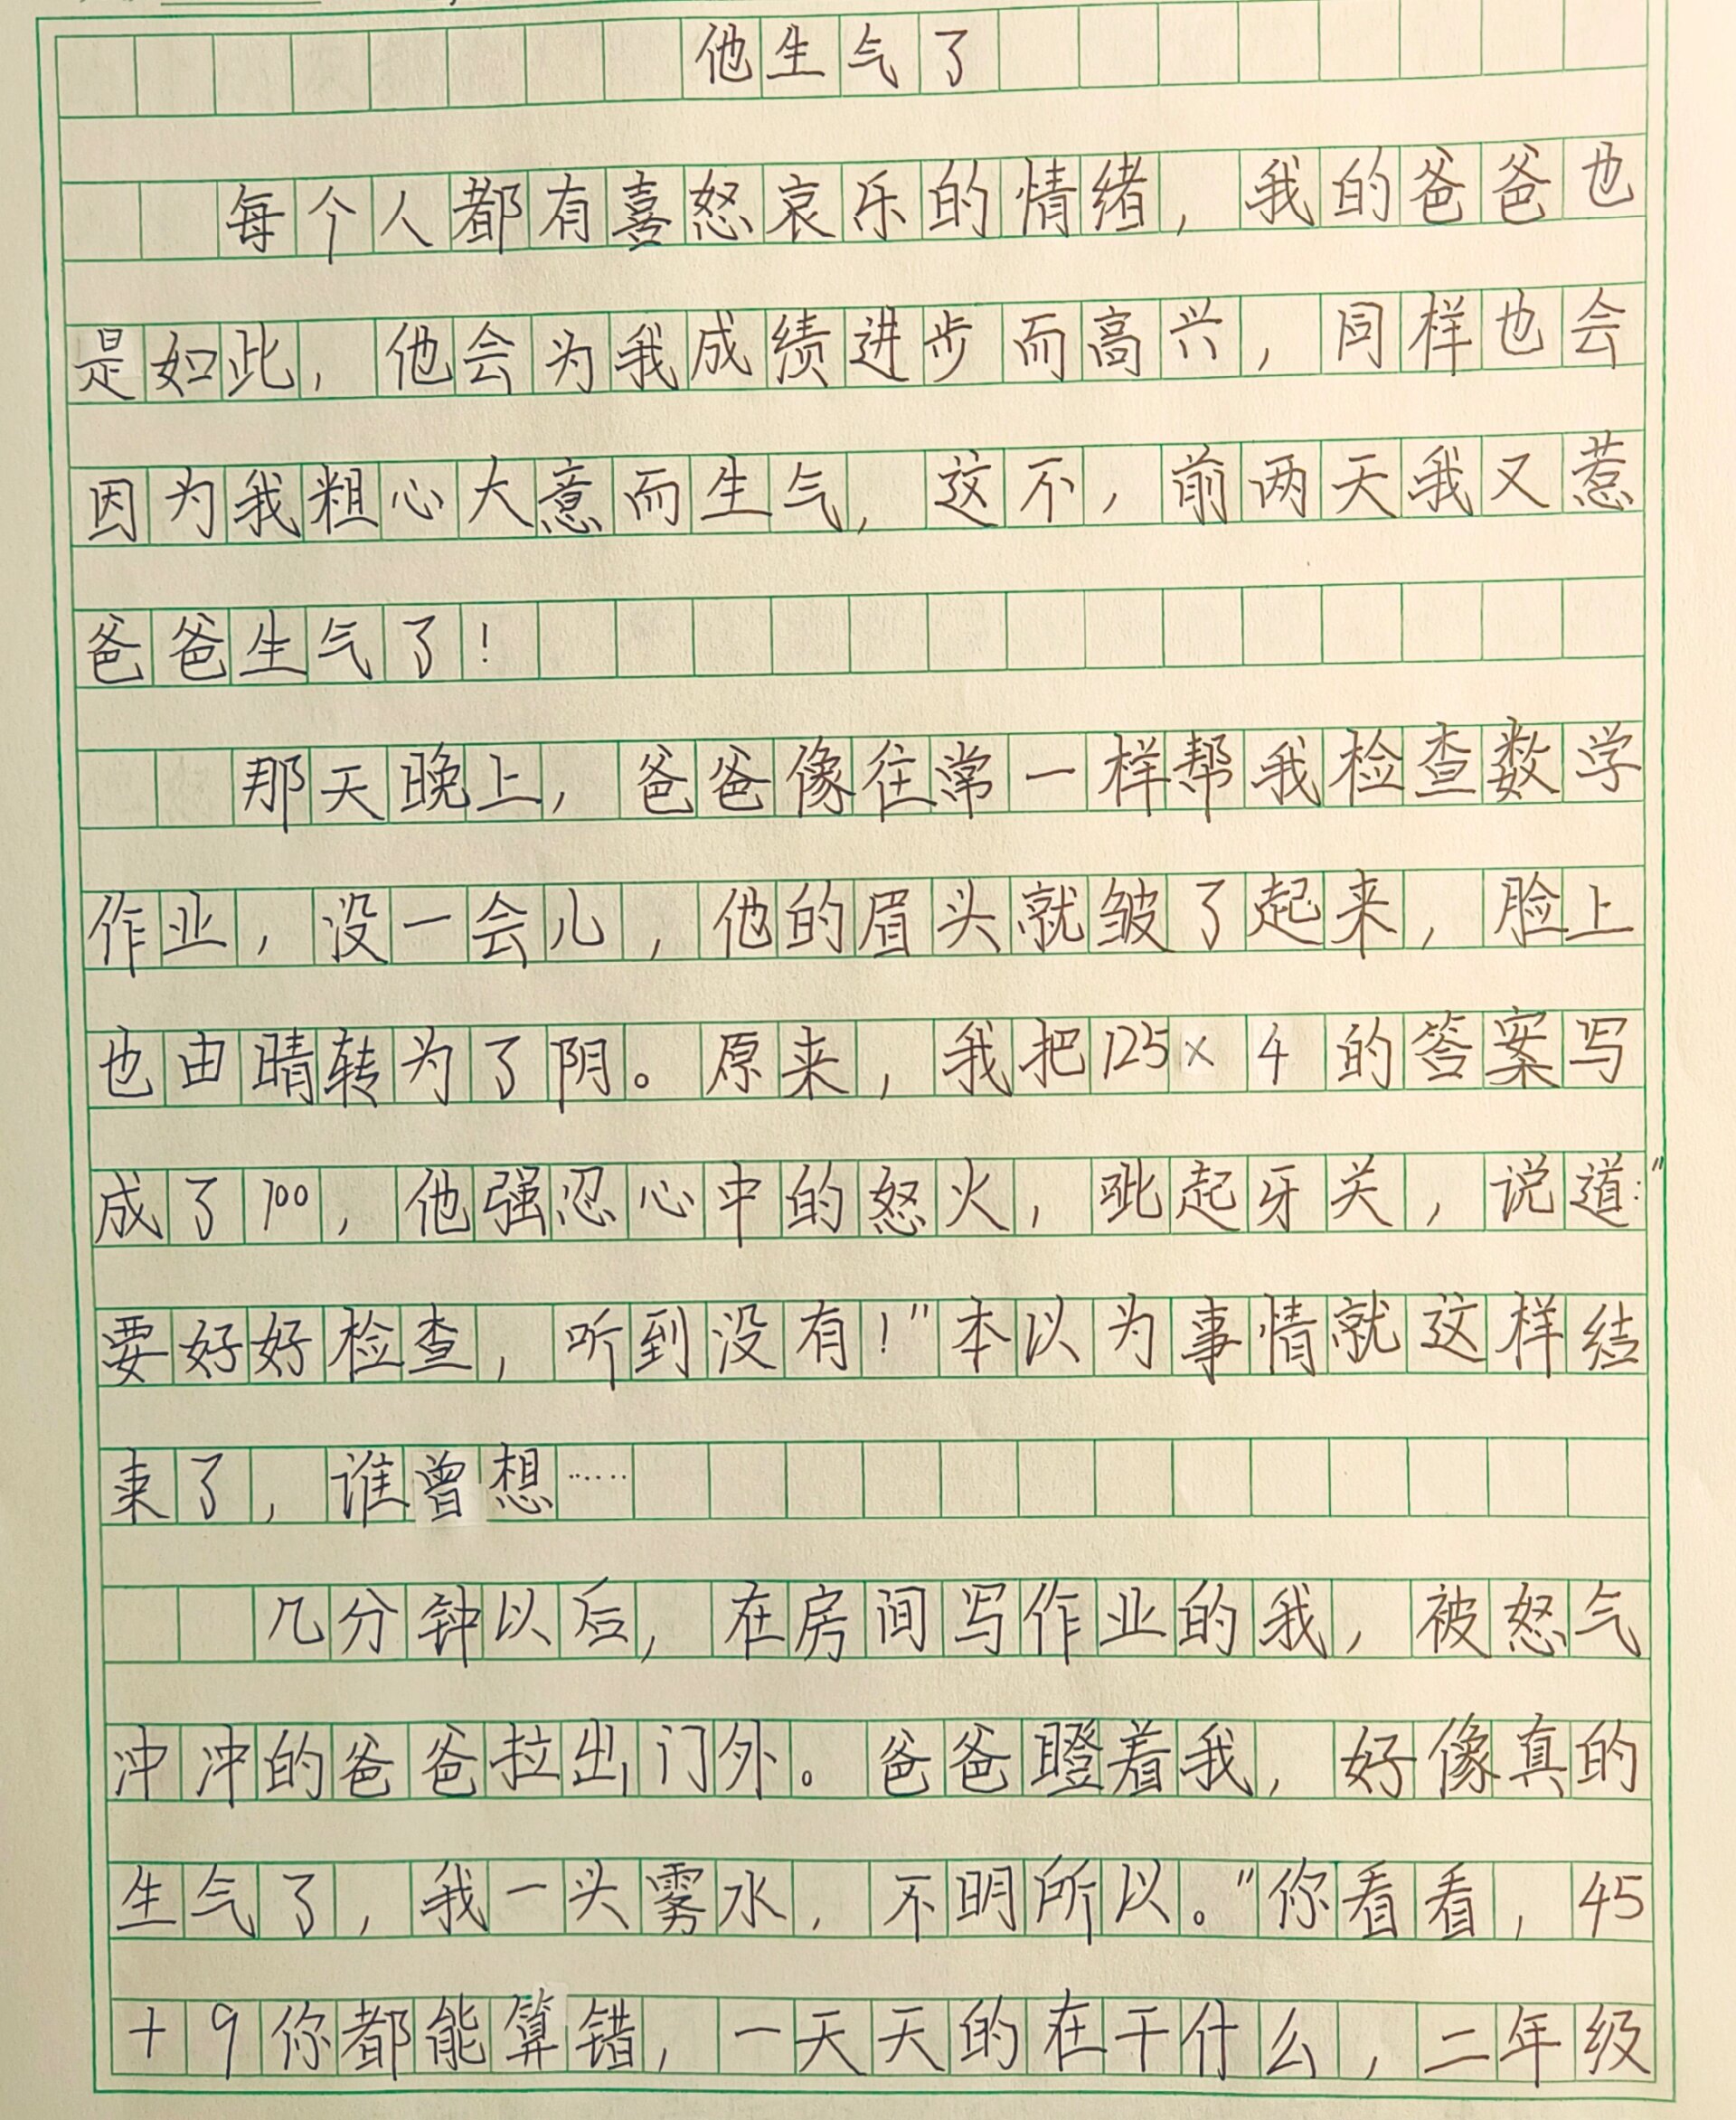 他生气了
每个人都有喜怒哀乐的情绪，我的爸爸也
是如此，他会为我成绩进步而高兴，同样也会
因为我粗心大意而生气，这不，前两天我又惹
爸爸生气了！
那天晚上，爸爸像往常一样帮我检查数学
作业，没一会儿，他的眉头就皱了起来，脸上
也由晴转为了阴。原来，我把125×4的答案写
成了100，他强忍心中的怒火，呲起牙关，说道："
要好好检查，听到没有！"本以为事情就这样结
束了，谁曾想……
几分钟以后，在房间写作业的我，被怒气
冲冲的爸爸拉出门外。爸爸瞪着我，好像真的
生气了，我一头雾水，不明所以。"你看看，45
+9你都能算错，一天天的在干什么，二年级